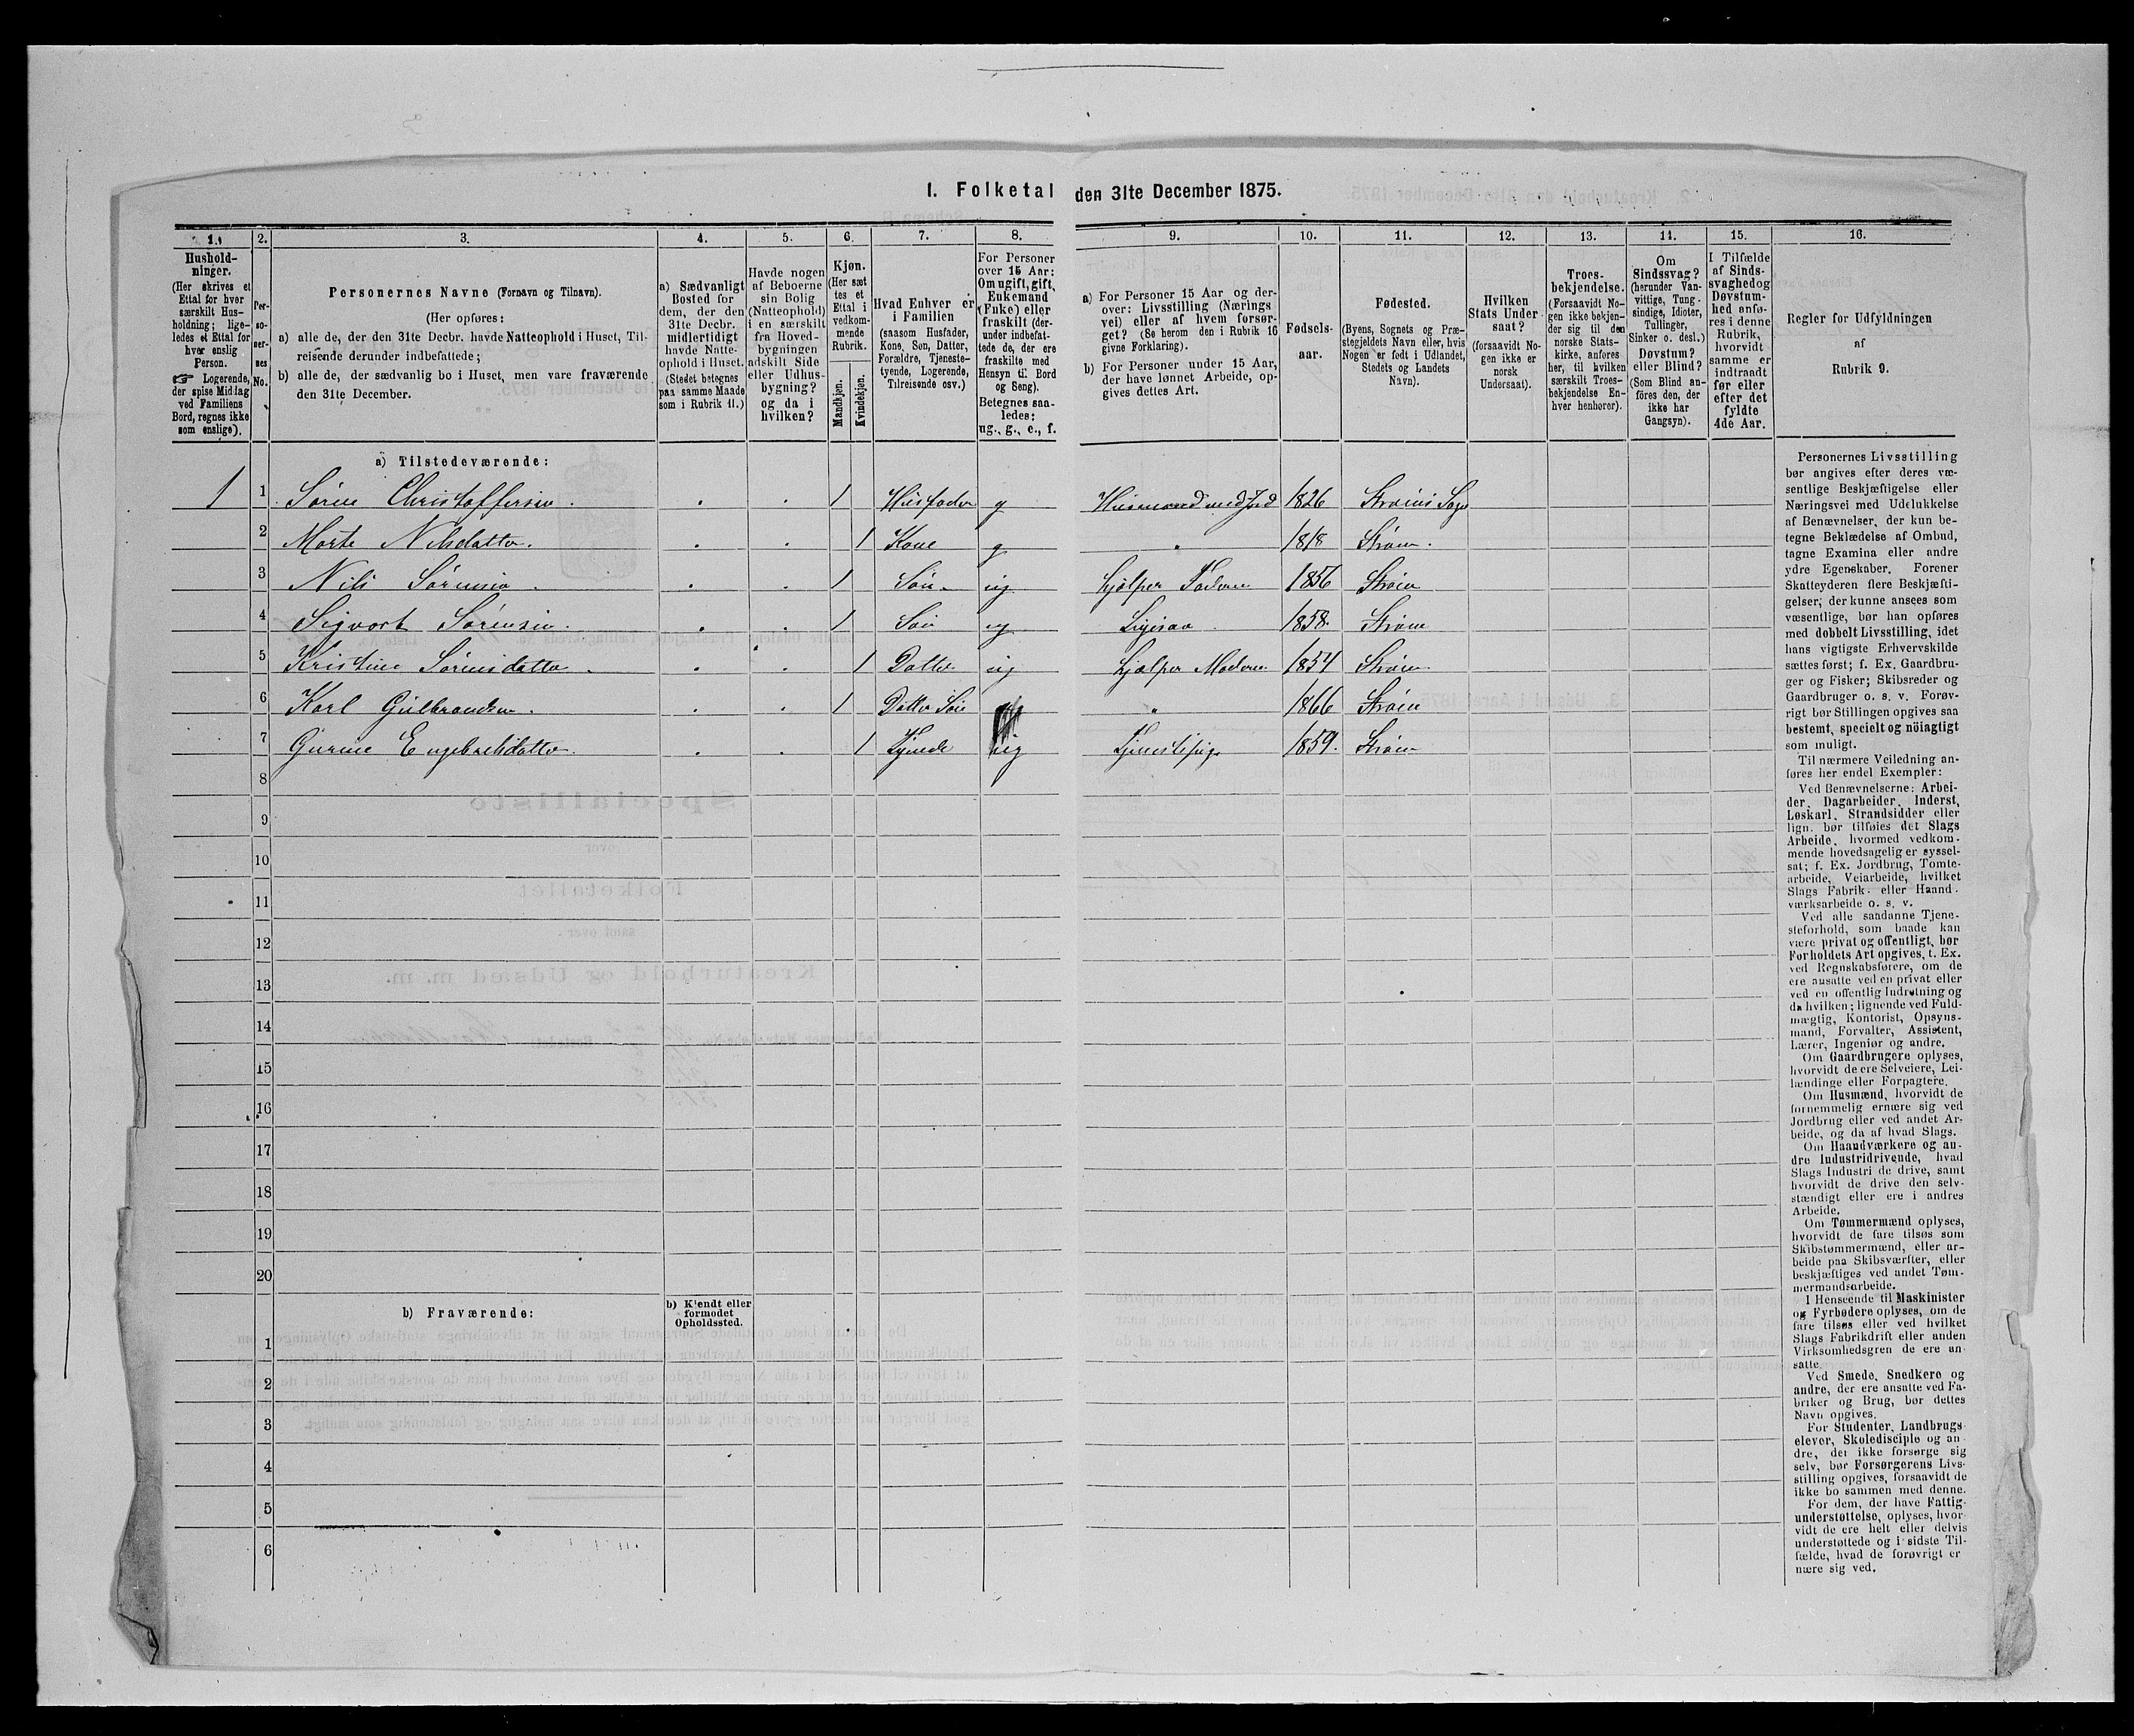 1. Folketal den 31te December 1875.
1.
2.
3.
4.
5.
6.
7.
8.
9.
10.
11.
12.
13.
14.
15.
16.
Hushold-
ninger.
(Her skrives et
Ettal for hver
særskilt Hus-
holdning; lige-
ledes et Ettal for
hver enslig
Person.
☞ Logerende,
der spise Middag
ved Familiens
Bord, regnes ikke
som enslige).
Per-
so-
ner-
nes
No.
Personernes Navne (Fornavn og Tilnavn).
(Her opføres:
a) alle de, der den 31te Decbr. havde Natteophold i Huset, Til-
reisende derunder indbefattede;
b) alle de, der sædvanlig bo i Huset, men vare fraværende
den 31te December.
a) Sædvanligt
Bosted for
dem, der den
31te Decbr.
midlertidigt
havde Natte-
ophold i Huset.
(Stedet betegnes
paa samme Maade
som i Rubrik 11.)
Havde nogen
af Beboerne
sin Bolig
(Natteophold)
i en særskilt
fra Hoved-
bygningen
adskilt Side
eller Udhus-
bygning?
og da i
hvilken?
Kjøn.
(Her sæt
tes et
Ettal i
vedkom-
mende
Rubrik.
Mandkjøn.
Kvindekjøn.
Hvad Enhver er
i Familien
(saasom Husfader,
Kone, Søn, Datter,
Forældre, Tjeneste-
tyende, Logerende,
Tilreisende osv.)
For Personer
over 15 Aar:
Om ugift, gift,
Enkemand
(Enke) eller
fraskilt (der-
under indbefat-
tede de, der ere
fraskilte med
Hensyn til Bord
og Seng).
Betegnes saa-
ledes:
ug., g., e., f.
a) For Personer 15 Aar og der-
over: Livsstilling (Nærings
vei) eller af hvem forsør-
get? (Se herom den i Rubrik 16
givne Forklaring).
b) For Personer under 15 Aar,
der have lønnet Arbeide, op-
gives dettes Art.
Fødsels-
aar.
Fødested.
(Byens, Sognets og Præ-
stegjeldets Navn eller, hvis
Nogen er født i Udlandet,
Stedets og Landets
Navn).
Hvilken
Stats Under
saat?
(forsaavidt No-
gen ikke er
norsk
Undersaat).
Troes-
bekjendelse.
(Forsaavidt No-
gen ikke bekjen-
der sig til den
norske Stats-
kirke, anføres
her, til hvilken
særskilt Troes-
bekjendelse En-
hver henhører).
Om
Sindssvag?
(herunder Van-
vittige, Tung-
sindige, Idioter,
Tullinger,
Sinker o. desl.)
Døvstum?
eller Blind?
(Som Blind an-
føres den, der
ikke har
Gangsyn).
I Tilfælde
af Sinds-
svaghed og
Døvstum-
hed anfø-
res i denne
Rubrik,
hvorvidt
samme er
indtraadt
før eller
efter det
fyldte
4de Aar.
Regler for Udfyldningen
af
Rubrik 9.
a) Tilstedeværende:
1 1 Søren Christoffersen . . . 1 Husfader g Husmand med Jord 1826 Strøms Sogn
2 Marte Nilsdatter. . . 1 Kone g " 1818 Strøm.
3 Nils Sørensen . . . 1 Søn ug hjælper Faderen 1856 Strøm
4 Sigvart Sørensen. . . 1 Søn ug Ligesaa 1858. Strøm
5 Kristine Sørensdatter . . . 1 Datter ug hjælper Moderen 1854 Strøm
6 Karl Gulbrandsen. . . 1 Datter Søn " 1866 Strøm
7 Gurine Engebretsdatter . . 1 Tjende ug 1859. Strøm
8
9
10
11
12
13
14
15
16
17
18
19
20
b) Fraværende:
b) Kjendt eller
formodet
Opholdssted.
1
2
3
4
5
6
Personernes Livsstilling
bør angives efter deres væ-
sentlige Beskjæftigelse eller
Næringsvei med Udelukkelse
af Benævnelser, der kun be-
tegne Beklædelse af Ombud,
tagne Examina eller andre
ydre Egenskaber. Forener
Skatteyderen flere Beskjæfti-
gelser, der kunne ansees som
væsentlige, bør han opføres
med dobbelt Livsstilling, idet
hans vigtigste Erhvervskilde
sættes først; f. Ex. Gaardbru-
ger og Fisker; Skibsreder og
Gaardbruger o. s. v. Forøv-
rigt bør Stillingen opgives saa
bestemt, specielt og nöiagtigt
som muligt.
Til nærmere Veiledning an-
føres her endel Exempler:
Ved Benævnelserne: Arbei-
der, Dagarbeider, Inderst,
Løskarl, Strandsidder eller
lign. bør tilføies det Slags
Arbeide, hvormed vedkom-
mende hovedsagelig er syssel-
sat; f. Ex. Jordbrug, Tomte-
arbeide, Veiarbeide, hvilket
Slags Fabrik- eller Haand-
værksarbeide o. s. v.
Ved alle saadanne Tjene-
steforhold, som baade kan
være privat og offentligt, bør
Forholdets Art opgives, t. Ex.
ved Regnskabsførere, om de
ere ansatte ved en privat eller
ved en offentlig Indretning og
da hvilken; lignende ved Fuld-
mægtig, Kontorist, Opsyns-
mand, Forvalter, Assistent,
Lærer, Ingeniør og andre.
Om Gaardbrugere oplyses,
hvorvidt de ere Selveiere, Lei-
lændinge eller Forpagtere.
Om Husmænd, hvorvidt de
fornemmelig ernære sig ved
Jordbrug eller ved andet Ar-
beide, og da af hvad Slags.
Om Haandværkere og an-
dre Industridrivende, hvad
Slags Industri de drive, samt
hvorvidt de drive den selv-
stændigt eller ere i andres
Arbeide.
Om Tømmermænd oplyses,
hvorvidt de fare tilsøs som
Skibstømmermænd, eller ar-
beide paa Skibsværfter, eller
beskjæftiges ved andet Tøm-
mermandsarbeide.
I Henseende til Maskinister
og Fyrbødere oplyses, om de
fare tilsøs eller ved hvilket
Slags Fabrikdrift eller anden
Virksomhedsgren de ere an-
satte.
Ved Smede, Snedkere og
andre, der ere ansatte ved Fa-
briker og Brug, bør dettes
Navn opgives.
For Studenter, Landbrugs-
elever, Skoledisciple og an-
dre, der ikke forsørge sig
selv, bør Forsørgerens Livs-
stilling opgives, forsaavidt de
ikke bo sammen med denne.
For dem, der have Fattig-
understøttelse, oplyses, hvor-
vidt de ere helt eller delvis
understøttede og i sidste Til-
fælde, hvad de forøvrigt er
nære sig ved.